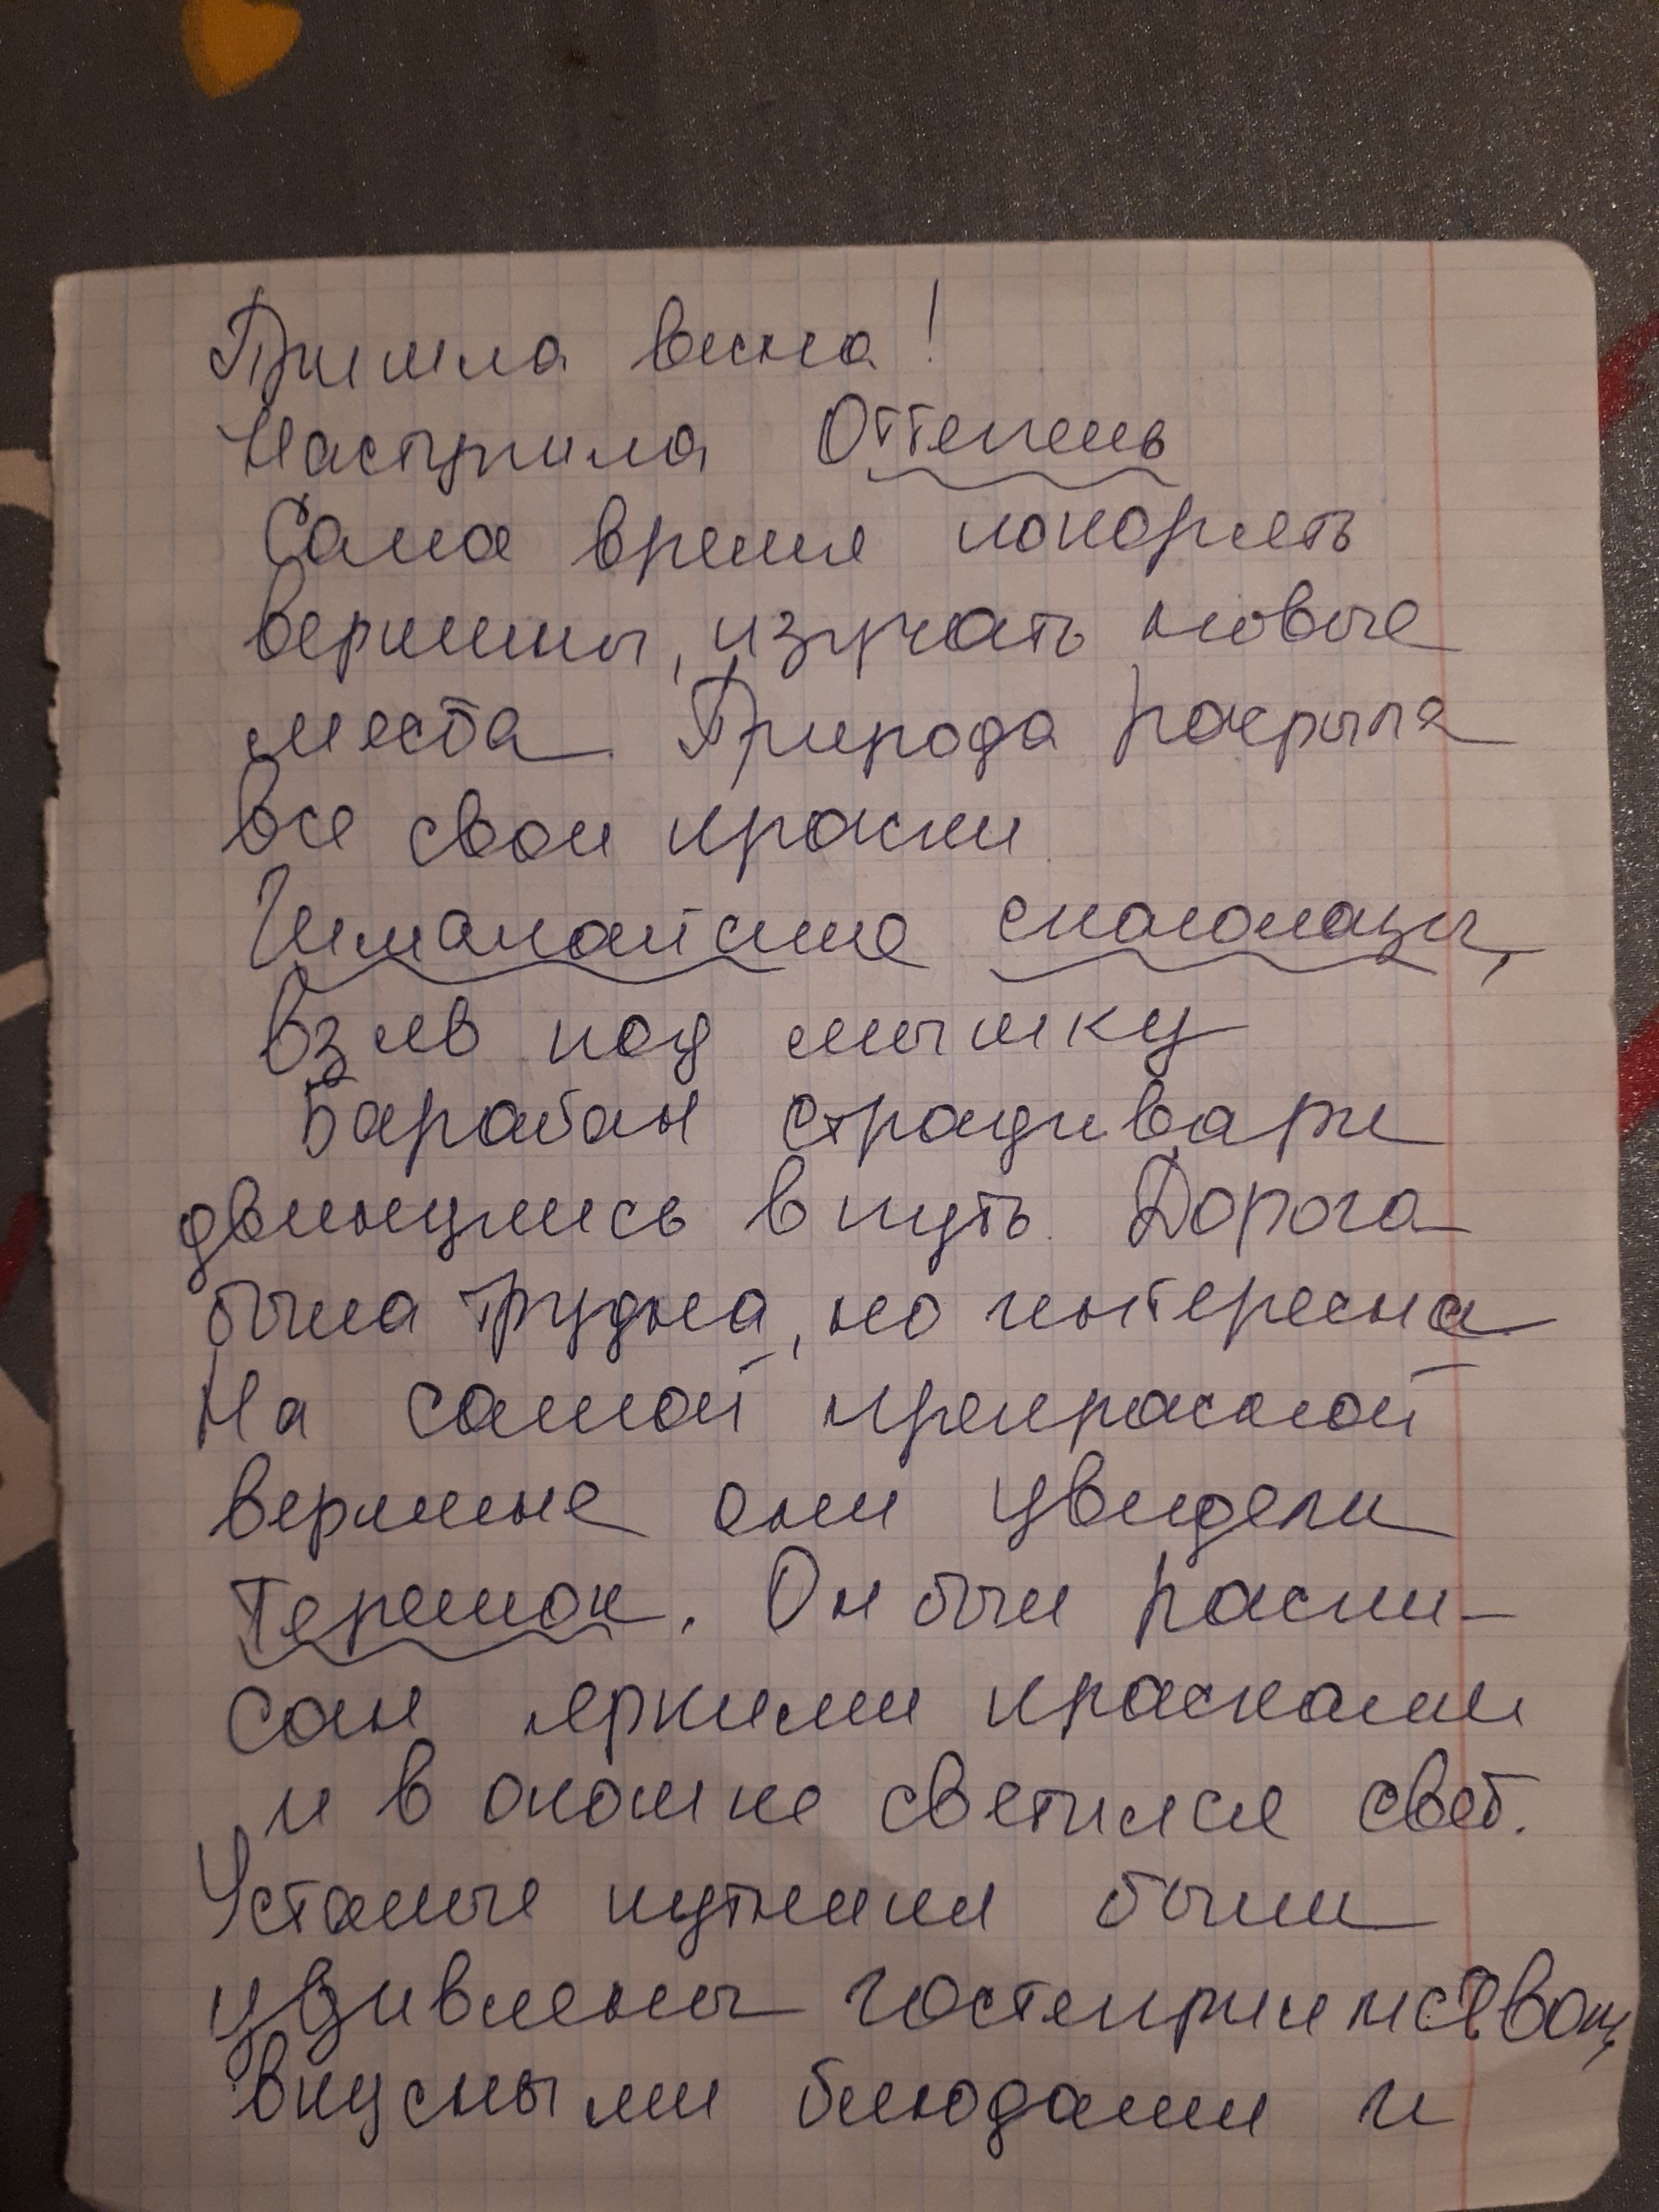 Пришла весна!
Наступила Оттепель
Само время покорять
вершины, изучать новые
места. Природа раскрыла
все свои краски.
Гималайские скалолазы,
взяв под мышку
Барабан страдивари
двинулись в путь. Дорога
была трудна, но интересна.
На самой прекрасной
вершине они увидели
Теремок. Он был распи-
сан яркими красками
и в окошке светился свет.
Усталые путники были
удивлены гостеприимством,
вкусными блюдами и